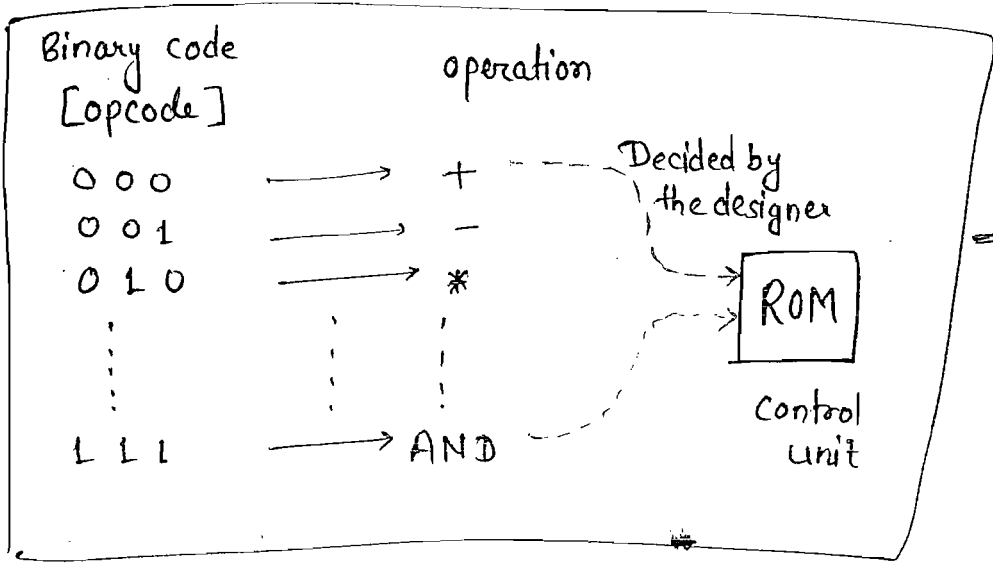 Binary code
[opcode]
operation
0 0 0 → +
0 0 1 → -
0 1 0 → *
1 1 1 → AND
Decided by
the designer
ROM
Control
unit